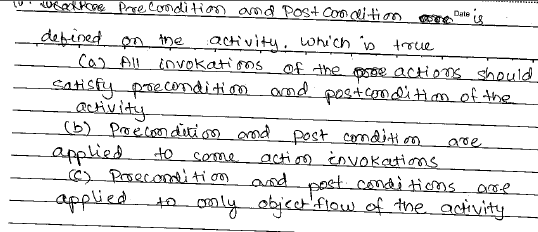 Precondition and Post Condition Date is
defined on the activity. which is true
(a) All invokations of the actions should
satisfy precondition and postcondition of the
activity
(b) Precondition and post condition are
applied to some action invokations
(c) Precondition and post conditions are
applied to only object flow of the activity